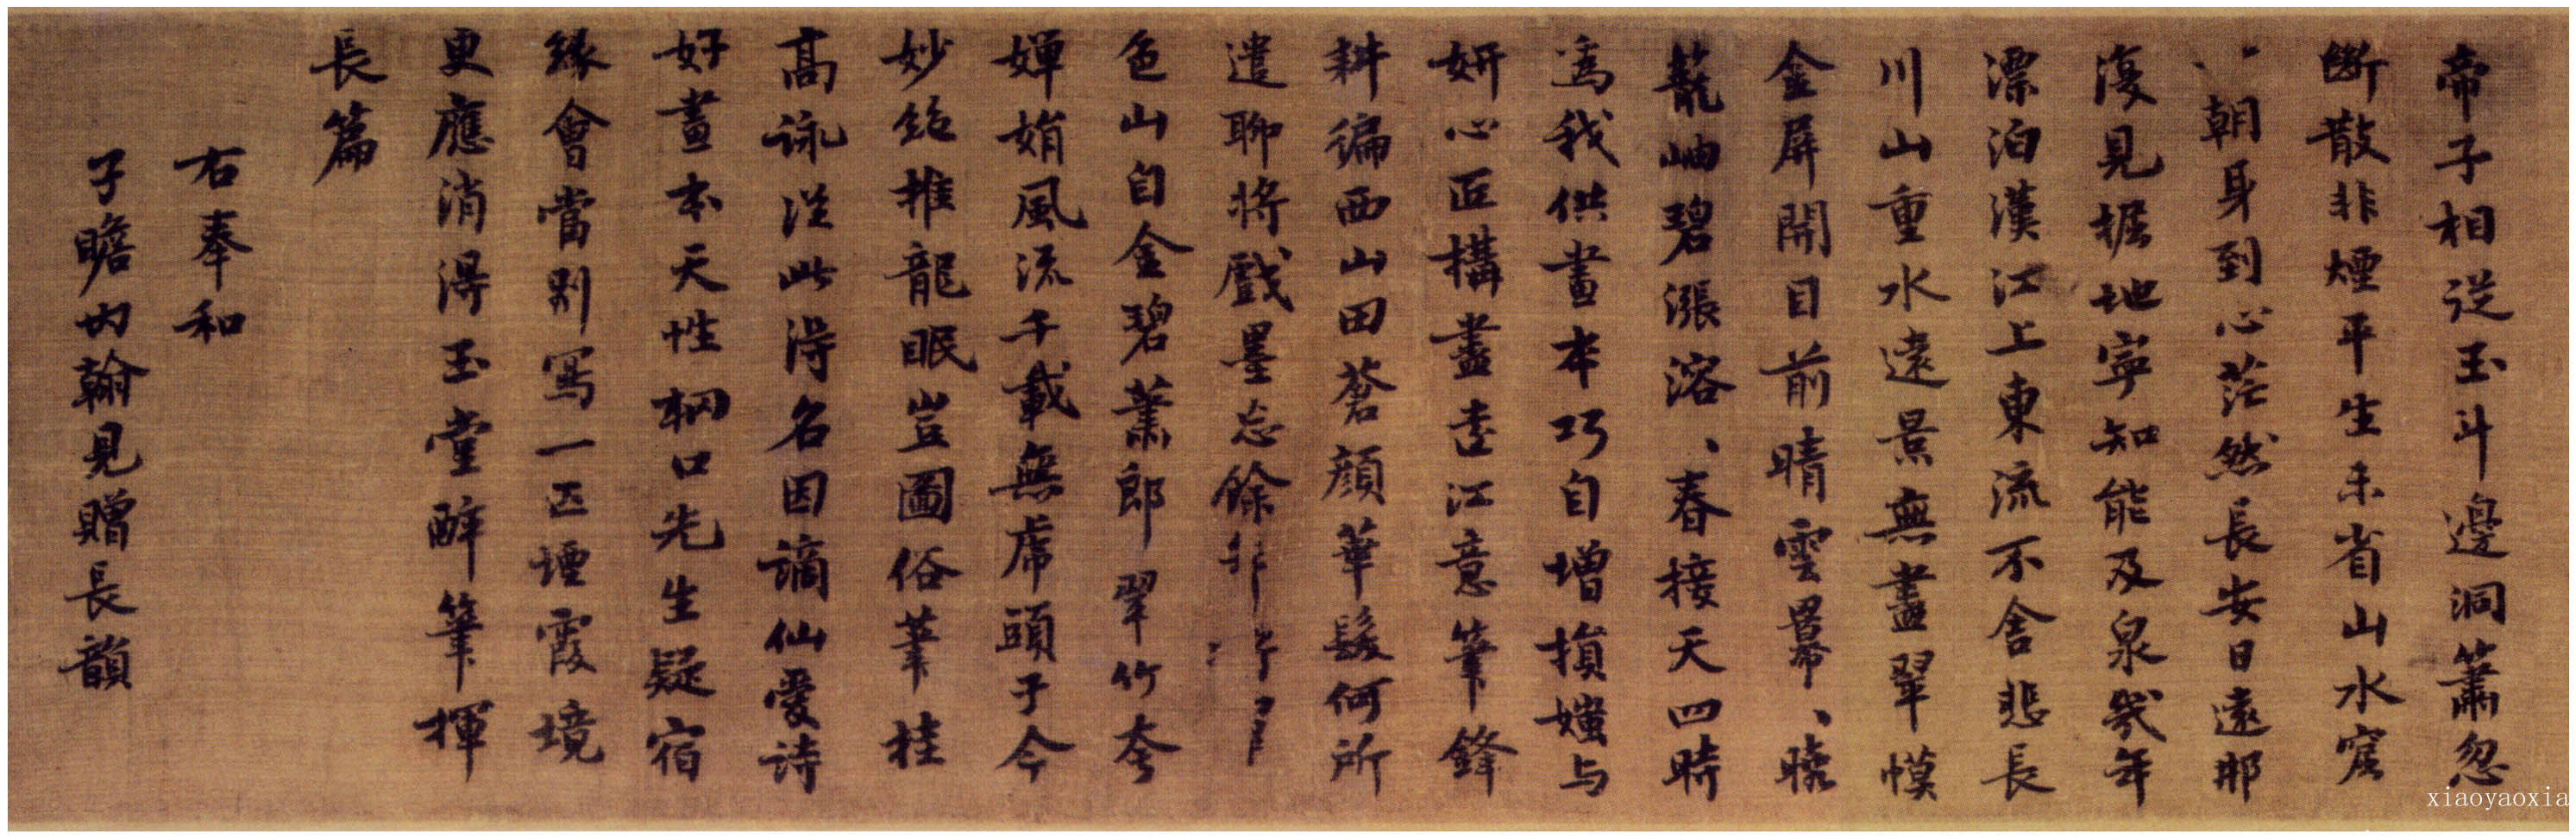 帝子相從玉斗邊洞簫忽
斷散非煙平生未省山水窟
一朝身到心茫然長安日遠那
復見掘地寧知能及泉幾年
漂泊漢江上東流不舍悲長
川山重水遠景無盡翠幙
金屏開目前晴雲羃、曉
籠岫碧漲溶、春接天四時
為我供畫本巧自增損媸与
妍心匠構盡壺江意筆鋒
耕徧西山田蒼顏華髮何所
遣聊將戲墨忘餘
色山自金碧蕭郎翠竹夸
嬋娟風流千載無虎頭于今
妙絕推龍眠豈圖俗筆挂
高詠從此得名因謫仙愛詩
好畫本天性輞口先生疑宿
緣會當別寫一匹煙霞境
更應消得玉堂醉筆揮
長篇
右奉和
子瞻內翰見贈長韻
xiaoyaoxia